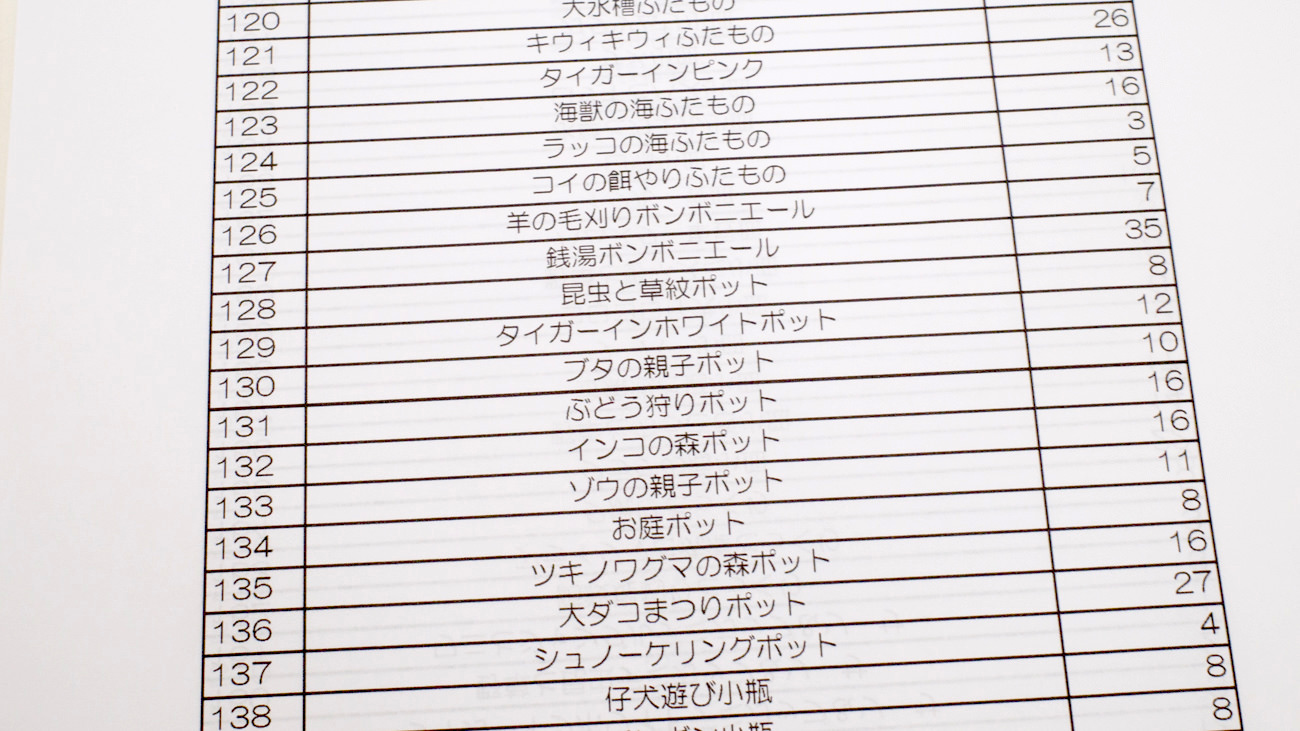 120 大水槽ふたもの
121 キウィキウィふたもの 26
122 タイガーインピンク 13
123 海獣の海ふたもの 16
124 ラッコの海ふたもの 3
125 コイの餌やりふたもの 5
126 羊の毛刈りボンボニエール 7
127 銭湯ボンボニエール 35
128 昆虫と草紋ポット 8
129 タイガーインホワイトポット 12
130 ブタの親子ポット 10
131 ぶどう狩りポット 16
132 インコの森ポット 16
133 ゾウの親子ポット 11
134 お庭ポット 8
135 ツキノワグマの森ポット 16
136 大ダコまつりポット 27
137 シュノーケリングポット 4
138 仔犬遊び小瓶 8
8